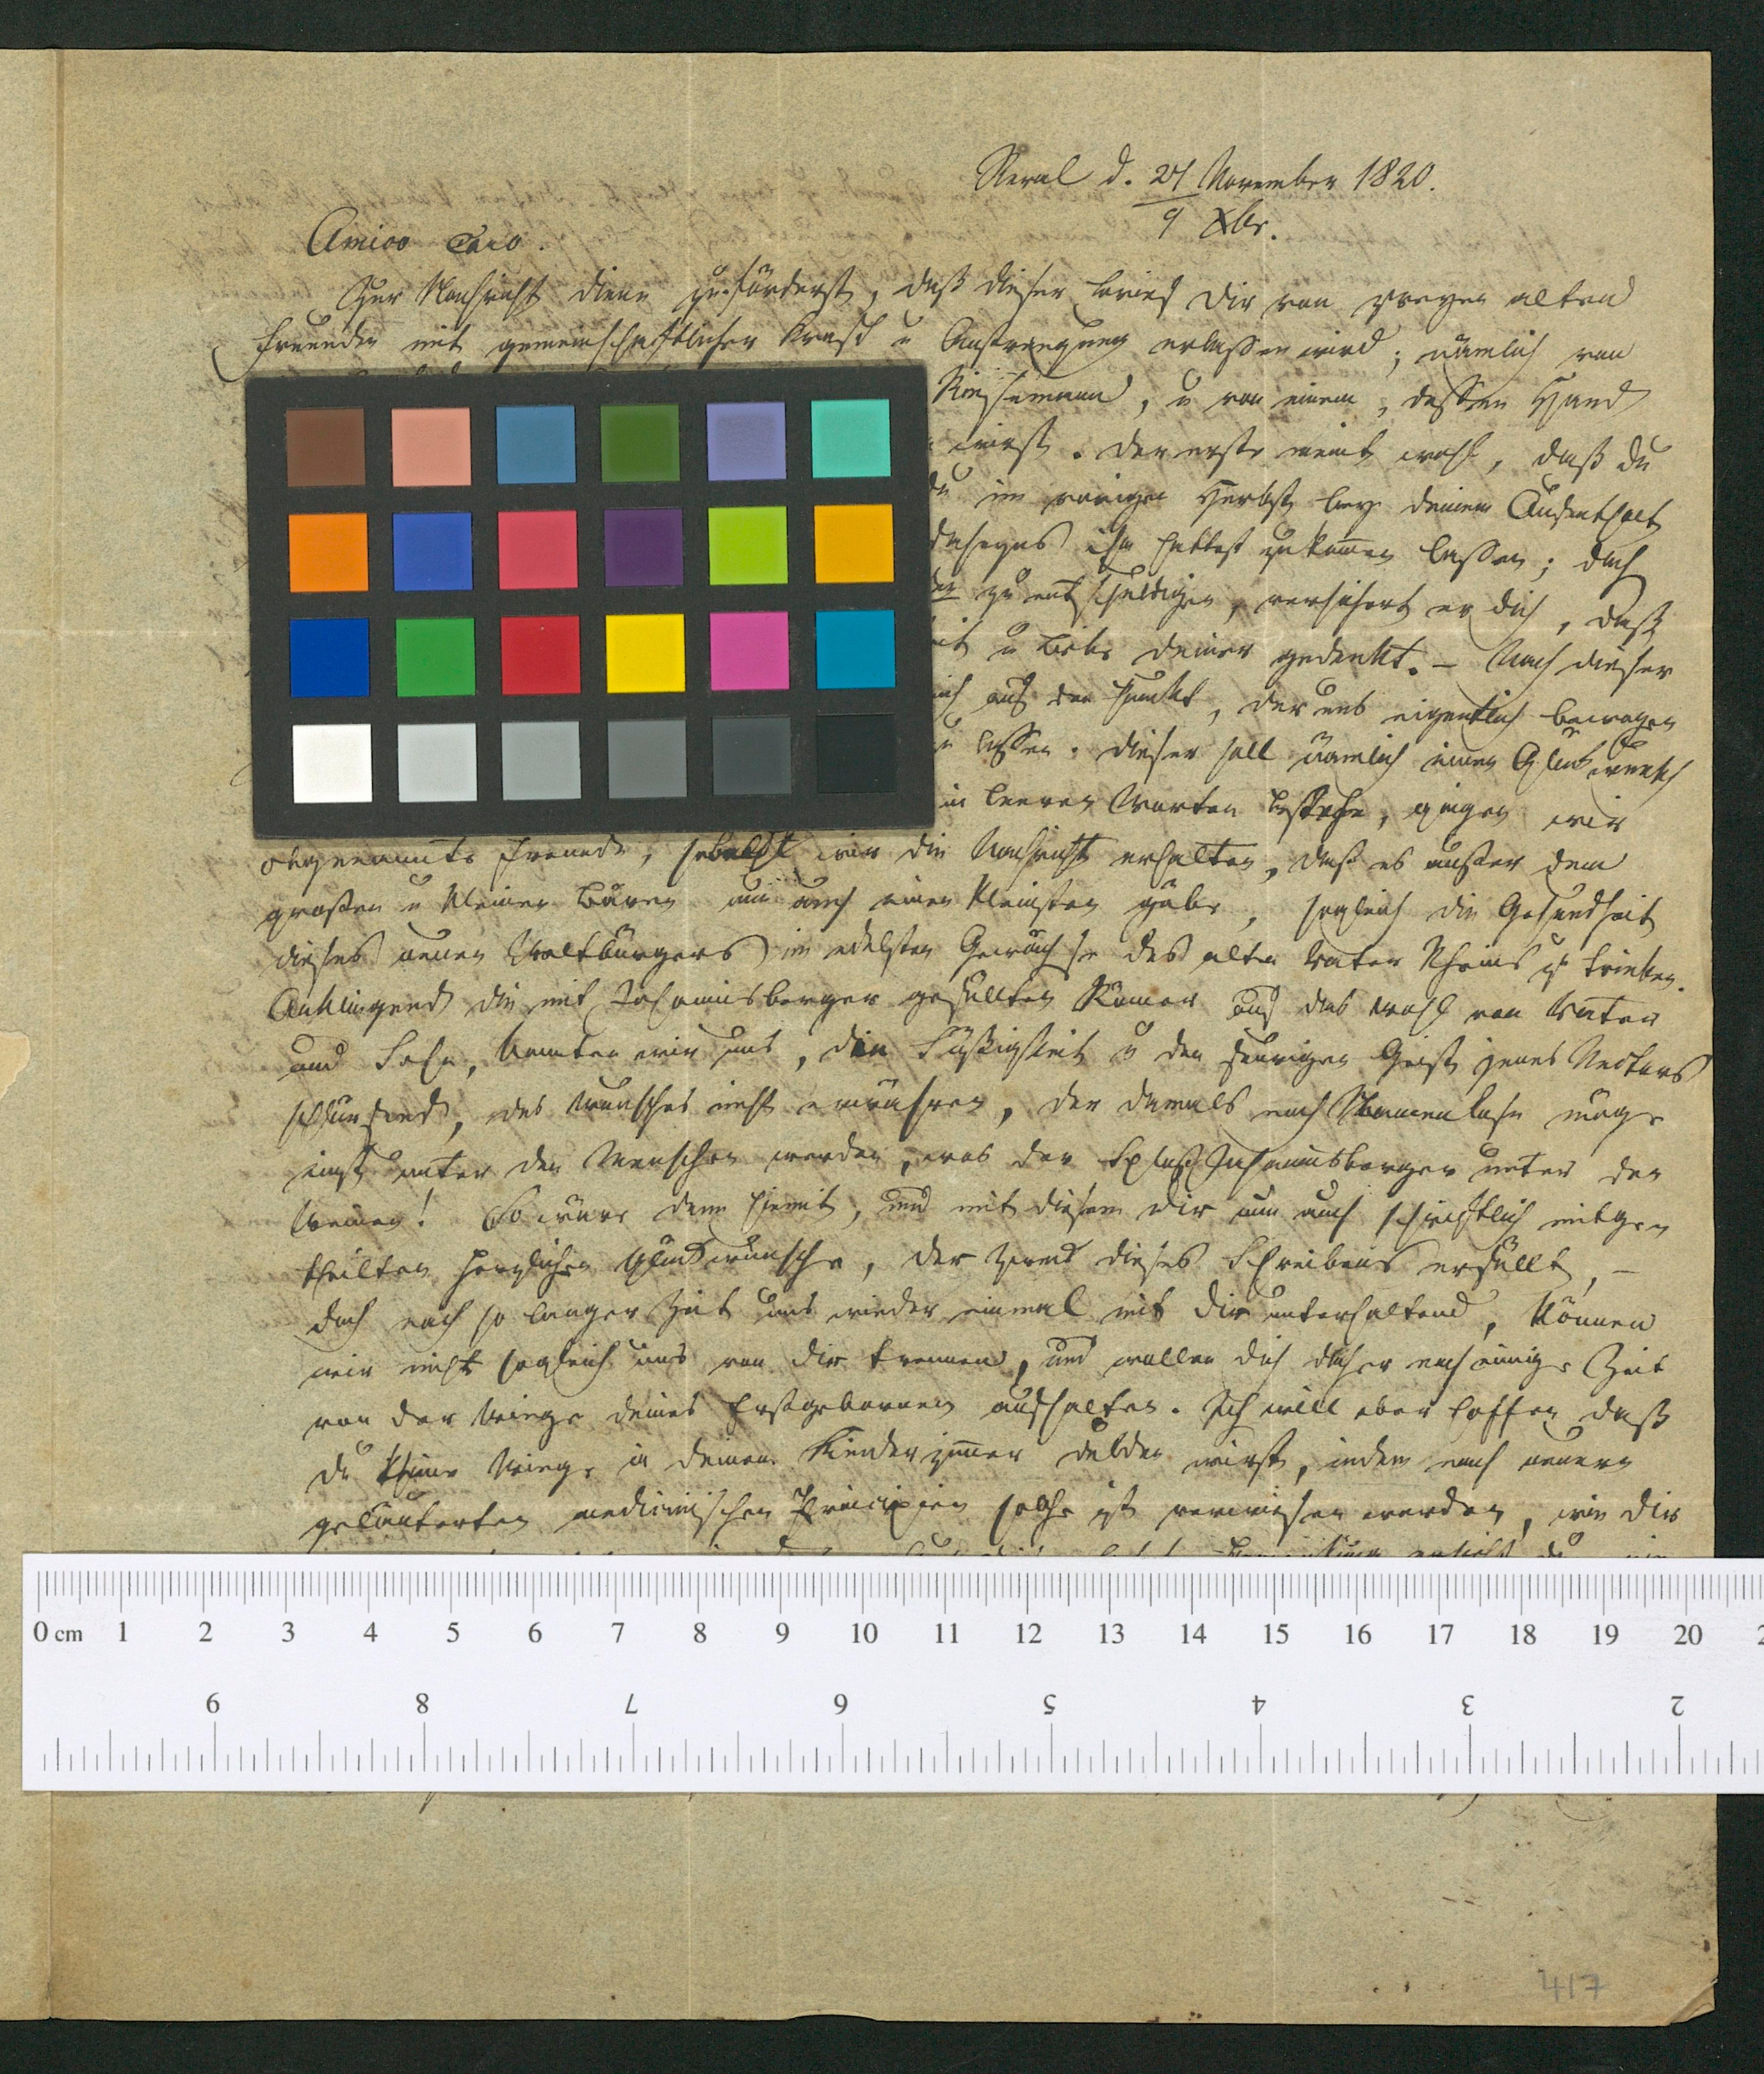 Reval d. 27 November 1820.
9 Xbr.
Amico Caro.
Zur Nachricht diene zuförderst, daß dieser Brief dir von zweyen alten
Freunden mit gemeinschaftlicher Kraft u Anstrengung erlassen wird; nämlich von
, u von einem, dessen Hand
wirst. Der erste meint wohl, daß du
du im vorigen Herbst bey deinem Aufenthalt
ihn hattest zukommen lassen; doch
zu entschuldigen, versichert er dich, daß
u Liebe deiner gedenkt. – Nach dieser
ich auf den Punkt, der uns eigentlich bewogen
zu lassen. Dieser soll nämlich einen Glückwunsch
in leeren Worten bestehe, gingen wir
obgenannte Freunde, sobald wir die Nachricht erhalten, daß es außer dem
großen u kleinen Bären nun auch einen kleinsten gäbe, sogleich die Gesundheit
dieses neuen Weltbürgers im edelsten Gewächse des alten Vater Rheins zu trinken.
Anklingend die mit Johannisberger gefüllten Römer auf das Wohl von Vater
und Sohn, konnten wir uns, die Süßigkeit u den feurigen Geist jenes Nectars
schlürfend, des Wunsches nicht erwehren, der damals noch Namenlose möge
einst unter den Menschen werden, was der Schloß Johannisberger unter den
Weinen! So wäre denn hiemit, und mit diesem dir nun auch schriftlich mitge-
theilten herzlichen Glückwunsche, der Zweck dieses Schreibens erfüllt, –
doch nach so langer Zeit uns wieder einmal mit dir unterhaltend, können
wir nicht sogleich uns von dir trennen, und wollen dich daher noch einige Zeit
von der Wiege deines Erstgebornen aufhalten. Ich will aber hoffen daß
du keine Wiege in deinem Kinderzimmer dulden wirst, indem nach neuern
geläuterten medicinischen Principien solche ist verwiesen worden, wie dir
0 cm 1 2 3 4 5 6 7 8 9 10 11 12 13 14 15 16 17 18 19 20 2
9 8 7 6 5 4 3 2
417